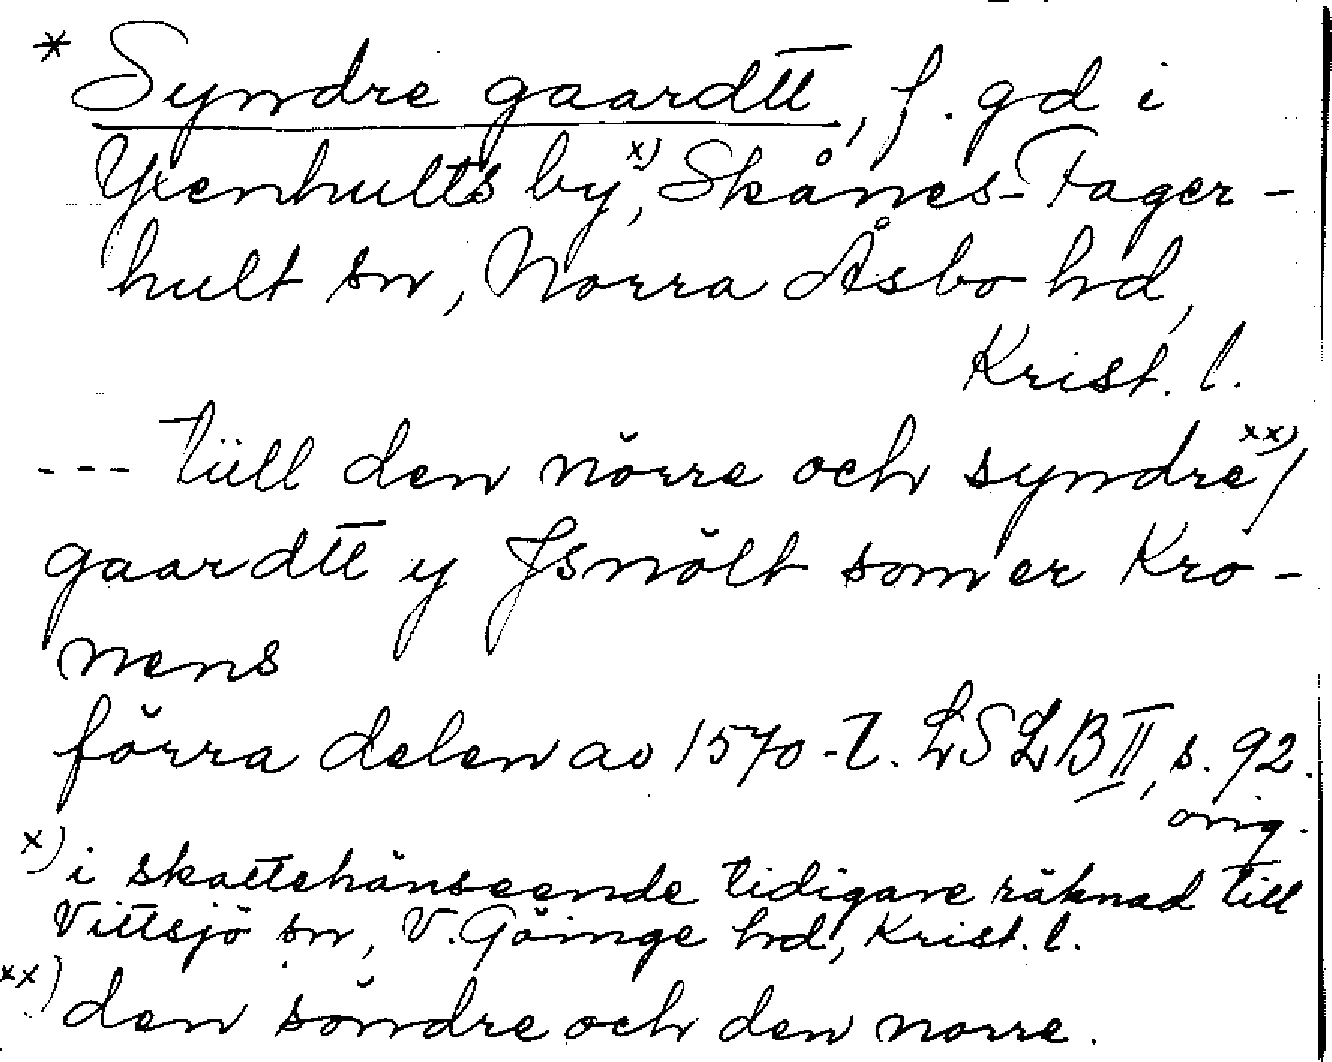 * Syndre gaardtt, f. gd i
Yxenhults by, x) Skånes-Fager-
hult sn, Norra Åsbo hd,
Krist. l.
--- tiill den nörre och syndre xx)/
gaardtt y Jsnölt som er Kro-
nens
förra delen av 1570-t. LSLB II, s. 92.
orig.
x) i skattehänseende tidigare räknad till
Vittsjö sn, V. Göinge hd, Krist. l.
xx) den söndre och den norre.